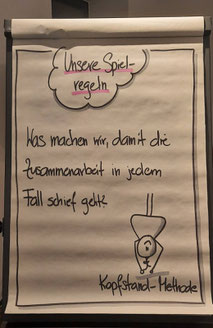 Unsere Spiel-
regeln
Was machen wir, damit die
Zusammenarbeit in jedem
Fall schief geht?
Kopfstand-Methode